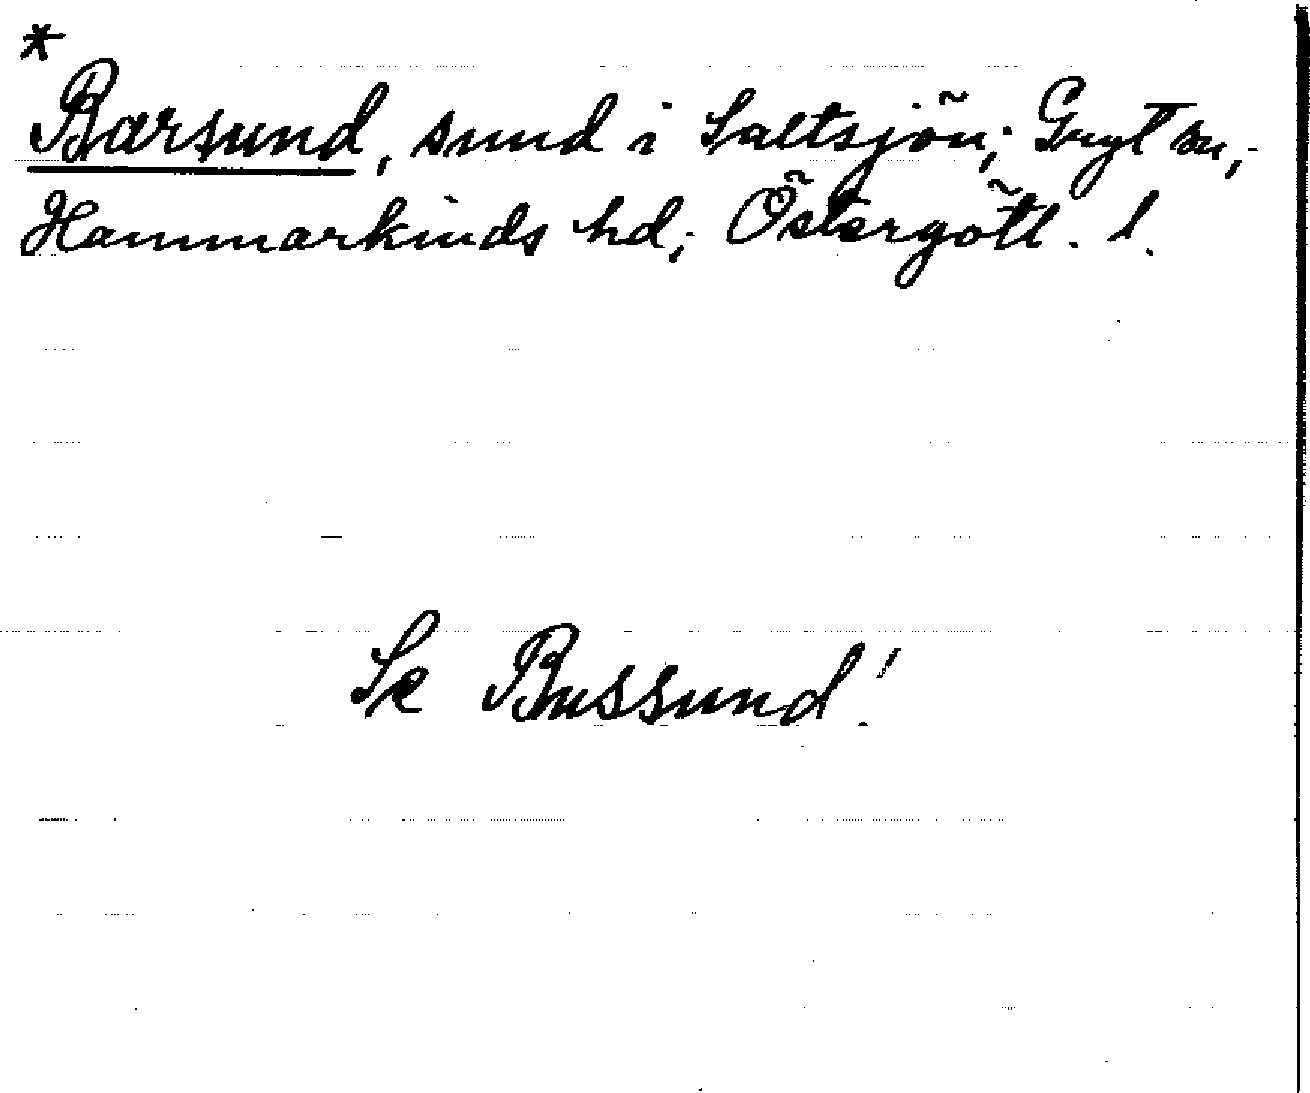 *
Barsund, sund i Saltsjön; Gryt sn,
Hammarkinds hd, Östergötl. l.
Se Bussund!